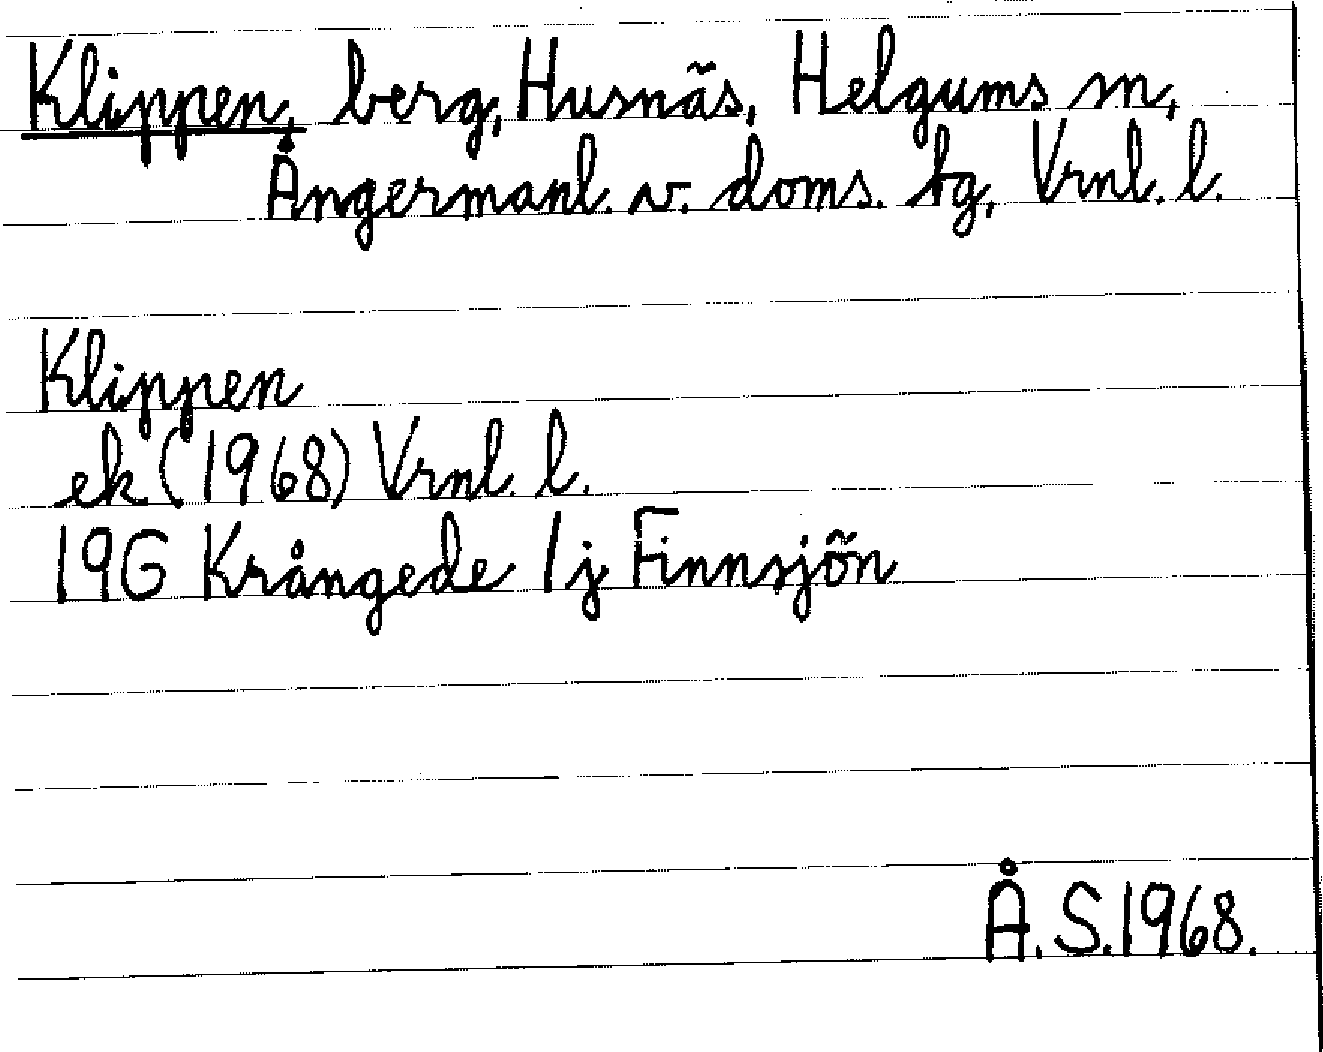 Klippen, berg, Husnäs, Helgums sn,
Ångermanl. v. doms. tg, Vrnl. l.
Klippen
ek (1968) Vrnl. l.
19G Krångede 1j Finnsjön
Å. S. 1968.